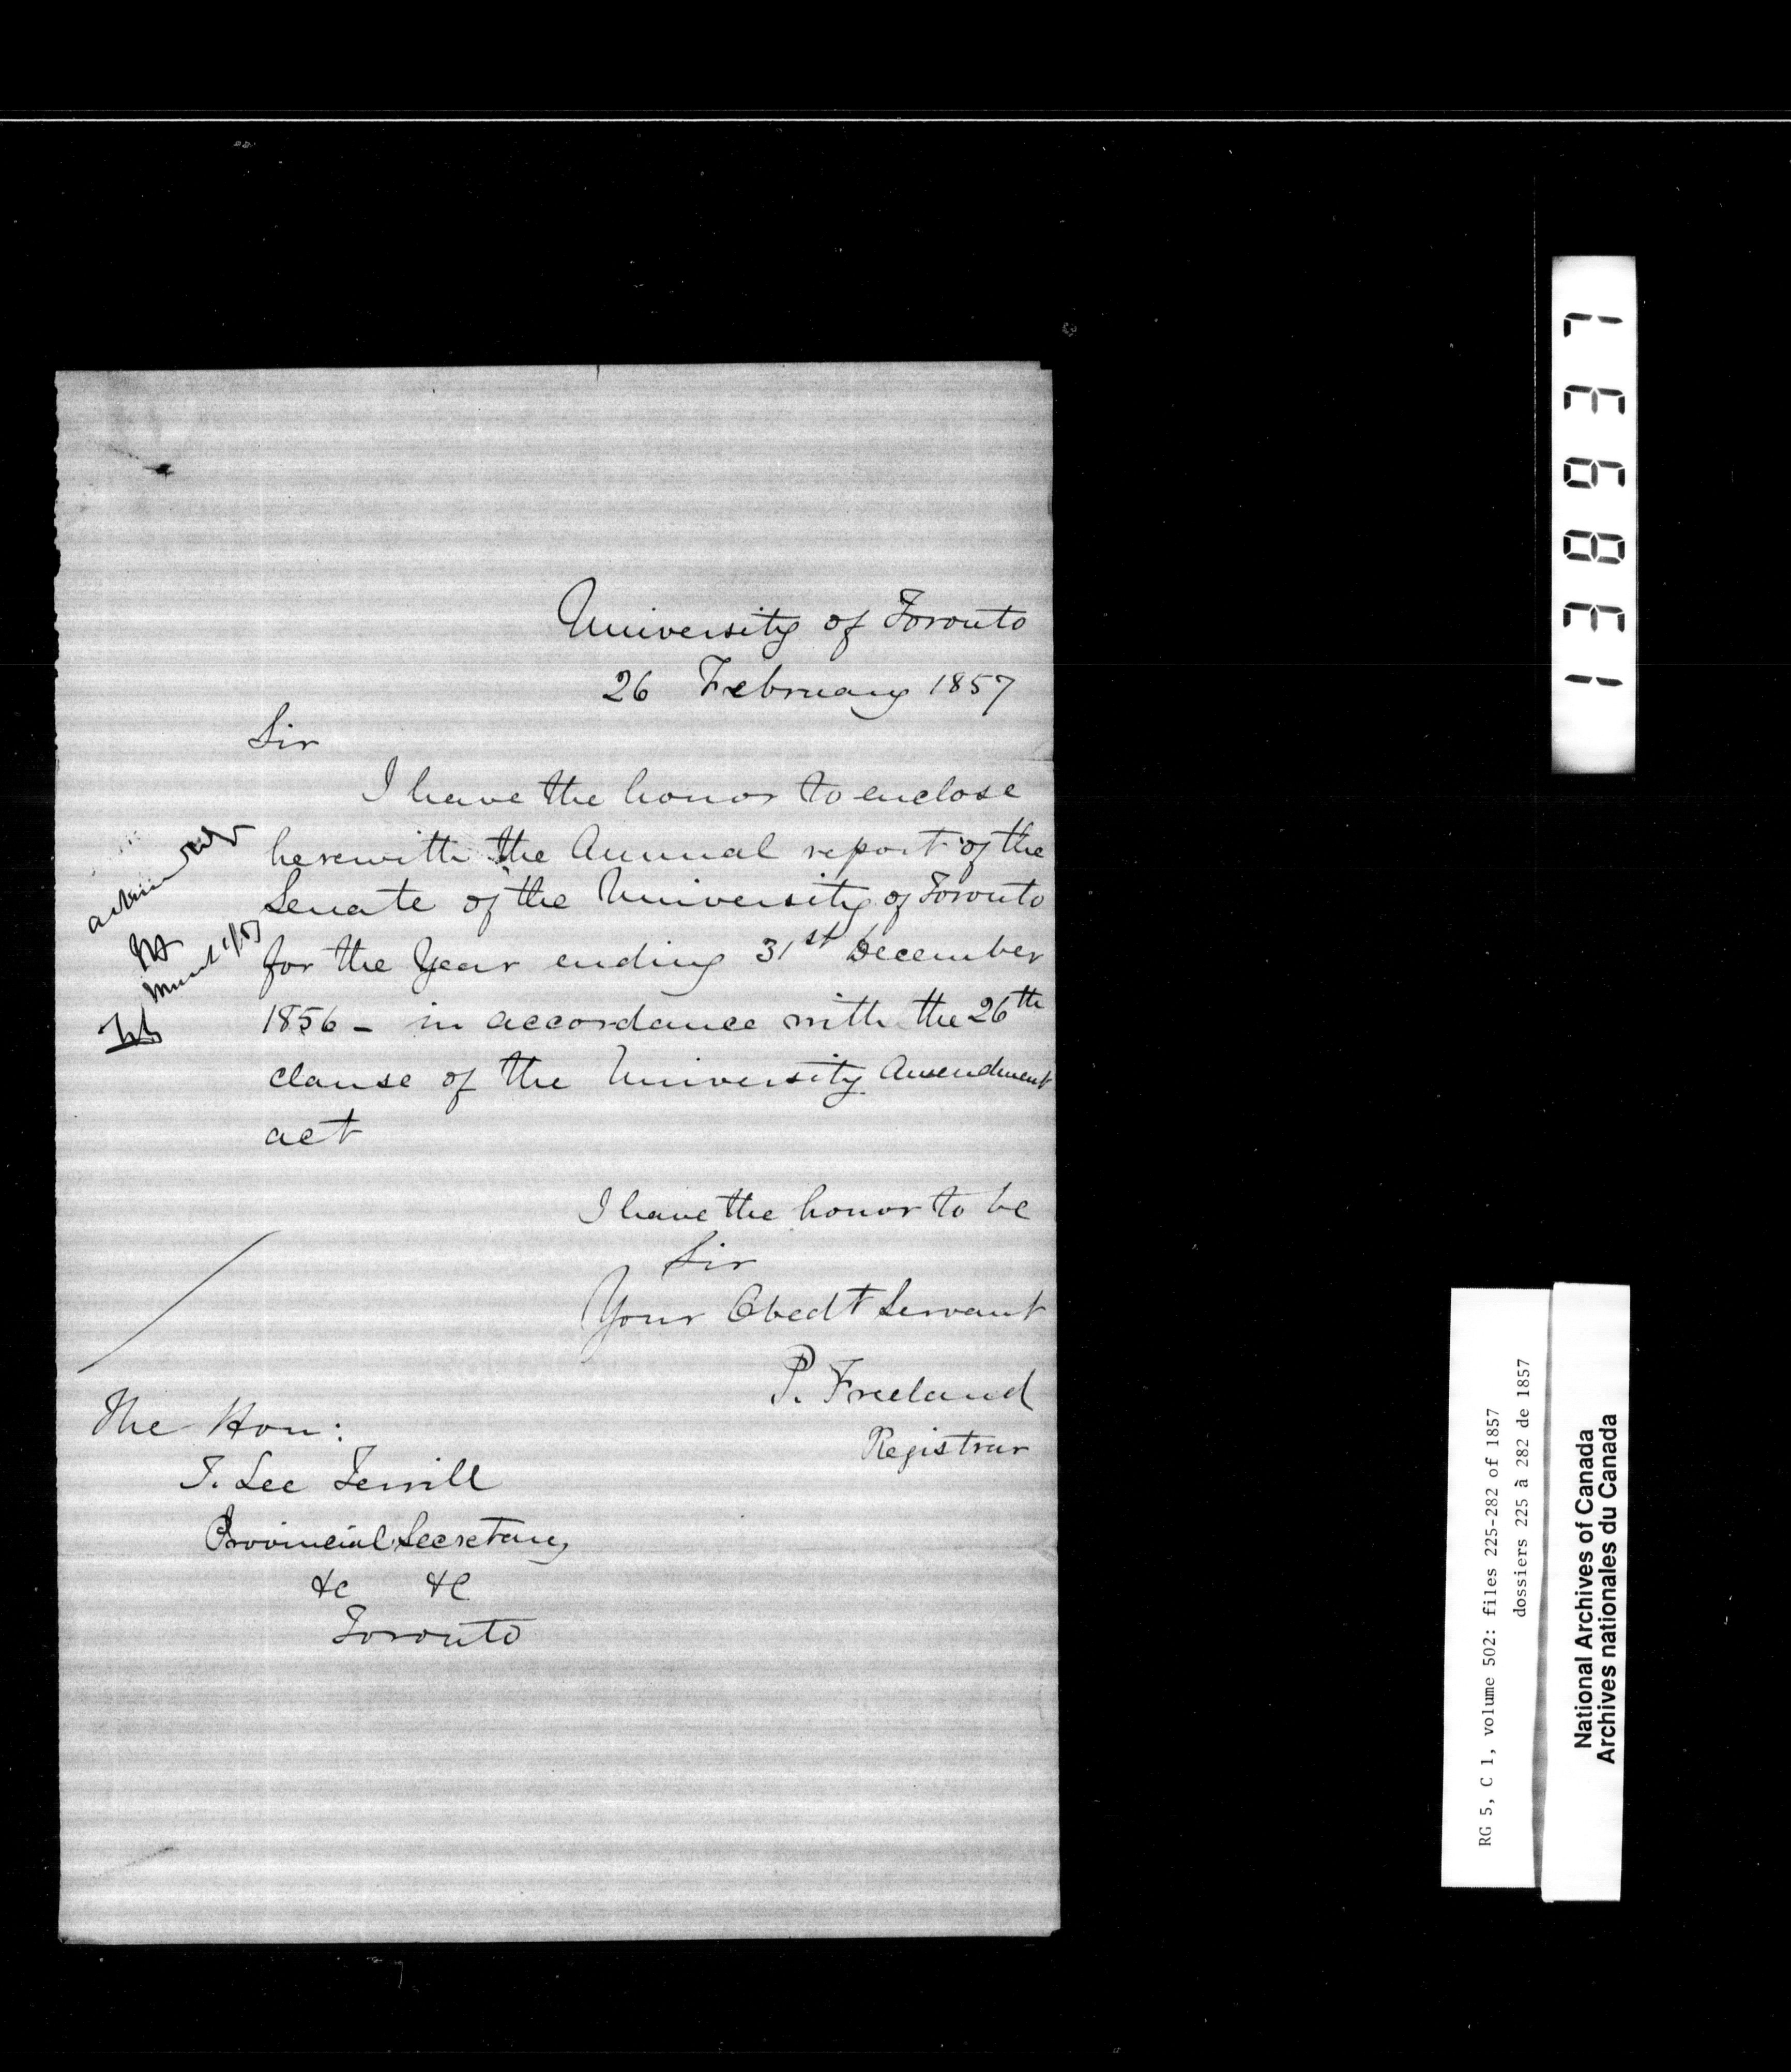 University of Toronto
26 February 1857
Sir
I have the honor to enclose
herewith the Annual report of the
Senate of the University of Toronto
for the Year ending 31st December
1856 – in accordance with the 26th
clause of the University Amendment
act
I have the honor to be
Sir
Your Obedt Servant
P. Freeland
Registrar
The Hon:
T. Lee Terrill
Provincial Secretary
&c &c
Toronto
138937
RG 5, C 1, volume 502: files 225-282 of 1857
dossiers 225 à 282 de 1857
National Archives of Canada
Archives nationales du Canada